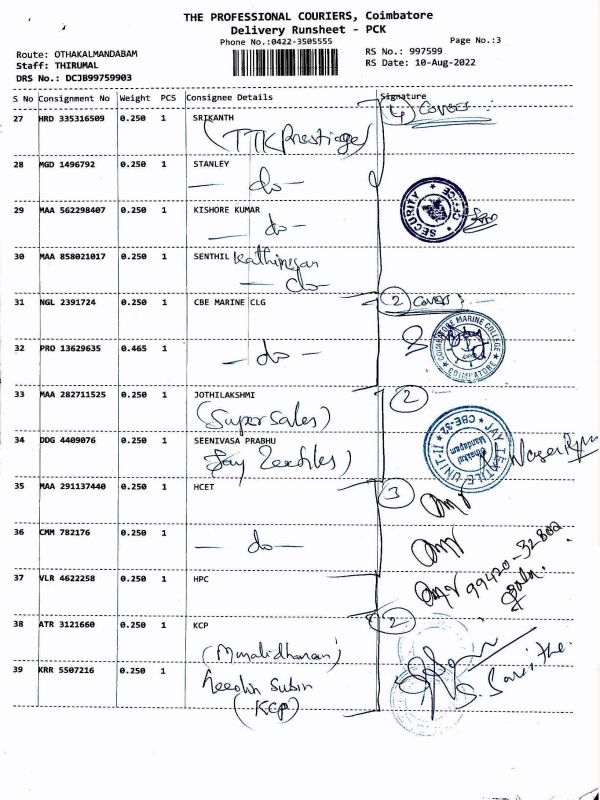 THE PROFESSIONAL COURIERS, Coimbatore
Delivery Runsheet - PCK
Phone No.:0422-3505555
Page No.:3
Route: OTHAKALMANDABAM
Staff: THIRUMAL
DRS No.: DCJB99759903
RS No.: 997599
RS Date: 10-Aug-2022
S No Consignment No Weight PCS Consignee Details Signature
27 HRD 335316509 0.250 1 SRIKANTH 4 Covers
(TTK Prestige)
28 MGD 1496792 0.250 1 STANLEY
— do —
SECURITY OFFICE
29 MAA 562298407 0.250 1 KISHORE KUMAR
— do —
30 MAA 858021017 0.250 1 SENTHIL
— do —
31 NGL 2391724 0.250 1 CBE MARINE CLG 2 Covers
COIMBATORE MARINE COLLEGE
COIMBATORE
32 PRO 13629635 0.465 1
— do —
33 MAA 282711525 0.250 1 JOTHILAKSHMI 2
(Super Sales)
34 DDG 4409076 0.250 1 SEENIVASA PRABHU
Jay Textiles)
JAY TEXTILE UNIT-II CBE-32
Othakkal Mandapam
35 MAA 291137440 0.250 1 HCET 3
36 CMM 782176 0.250 1
— do —
37 VLR 4622258 0.250 1 HPC
99420-32802
38 ATR 3121660 0.250 1 KCP 2
(Muralidharan)
39 KRR 5507216 0.250 1
Subin
(KCP)